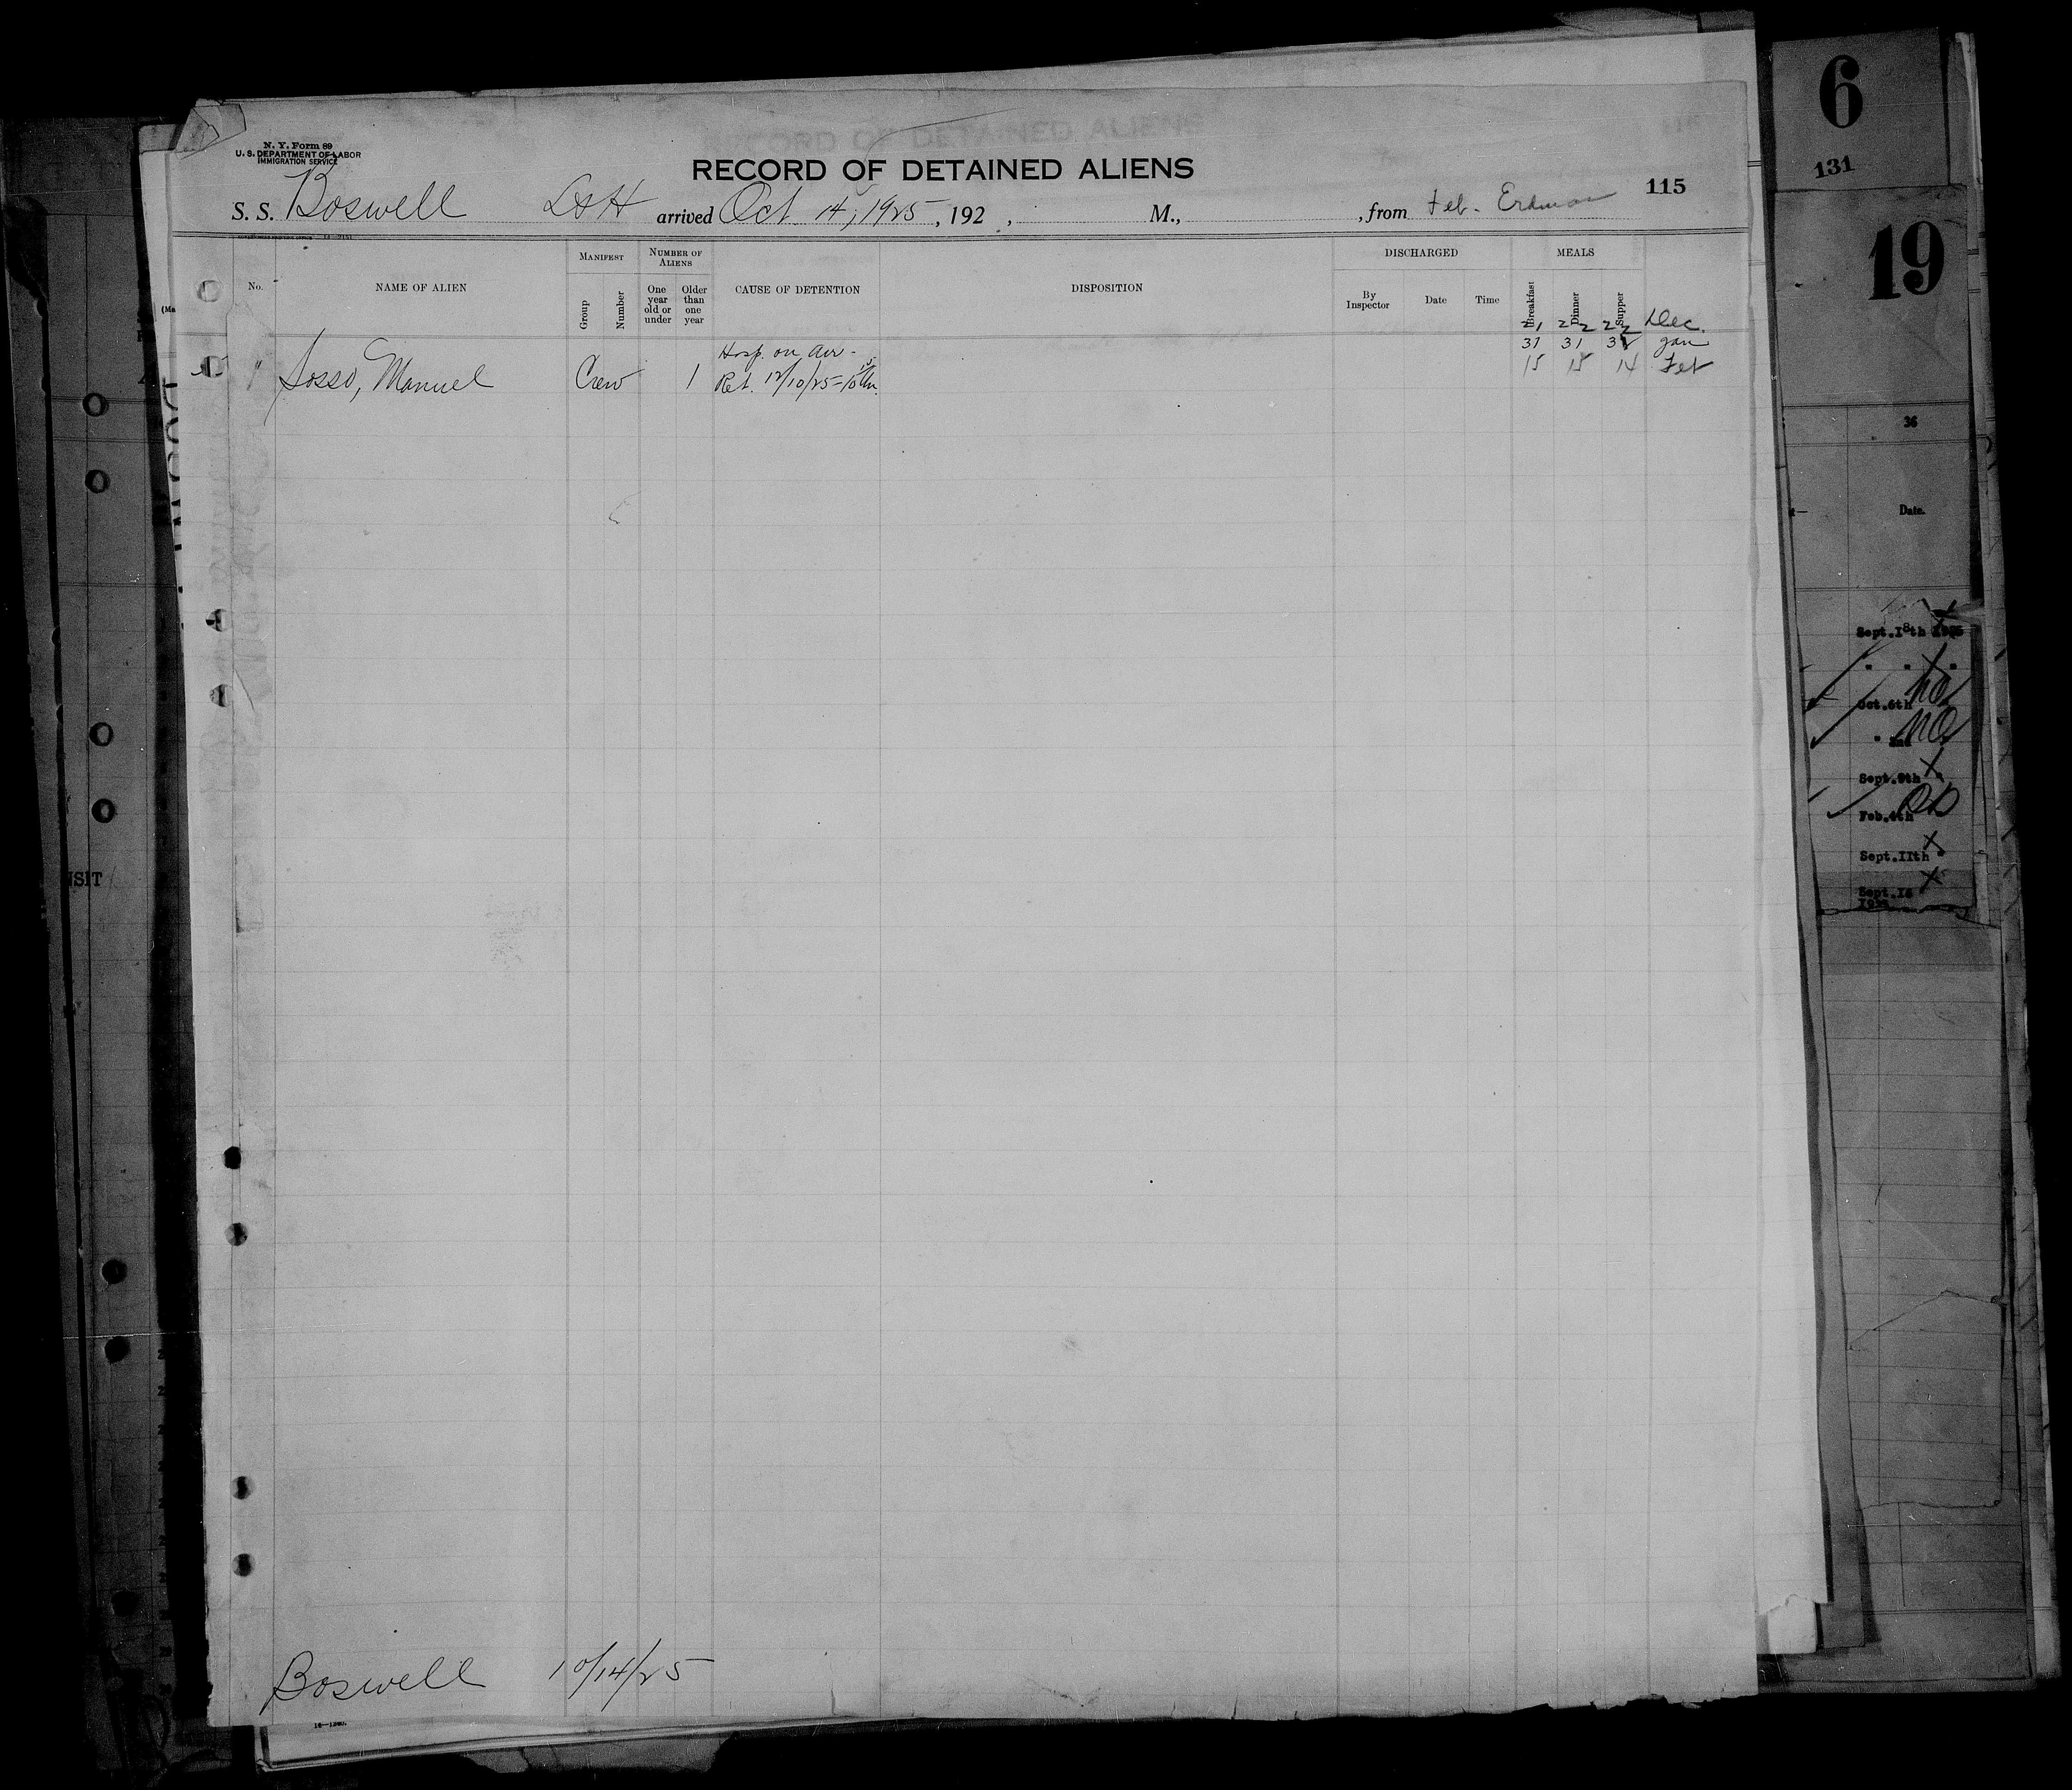 N. Y. Form 89
U. S. DEPARTMENT OF LABOR
IMMIGRATION SERVICE
RECORD OF DETAINED ALIENS
115
S. S. Boswell arrived Oct 14, 1925, 192 , M., , from Feb. Erdman
No.
NAME OF ALIEN
MANIFEST
Group
Number
NUMBER OF ALIENS
One year old or under
Older than one year
CAUSE OF DETENTION
DISPOSITION
DISCHARGED
By Inspector
Date
Time
MEALS
Breakfast
Dinner
Supper
21 22 22 Dec.
31 31 31 Jan
15 15 14 Feb
Hosp. on arr -
1 Sosso, Manuel Crew 1 Ret. 12/10/25 -
Boswell 10/14/25
16—1240
6
131
19
36
Date.
Sept.18th 1925
" " "
Oct.6th
no
no
Sept.9th
Feb.4th
Sept.IIth
Sept.18